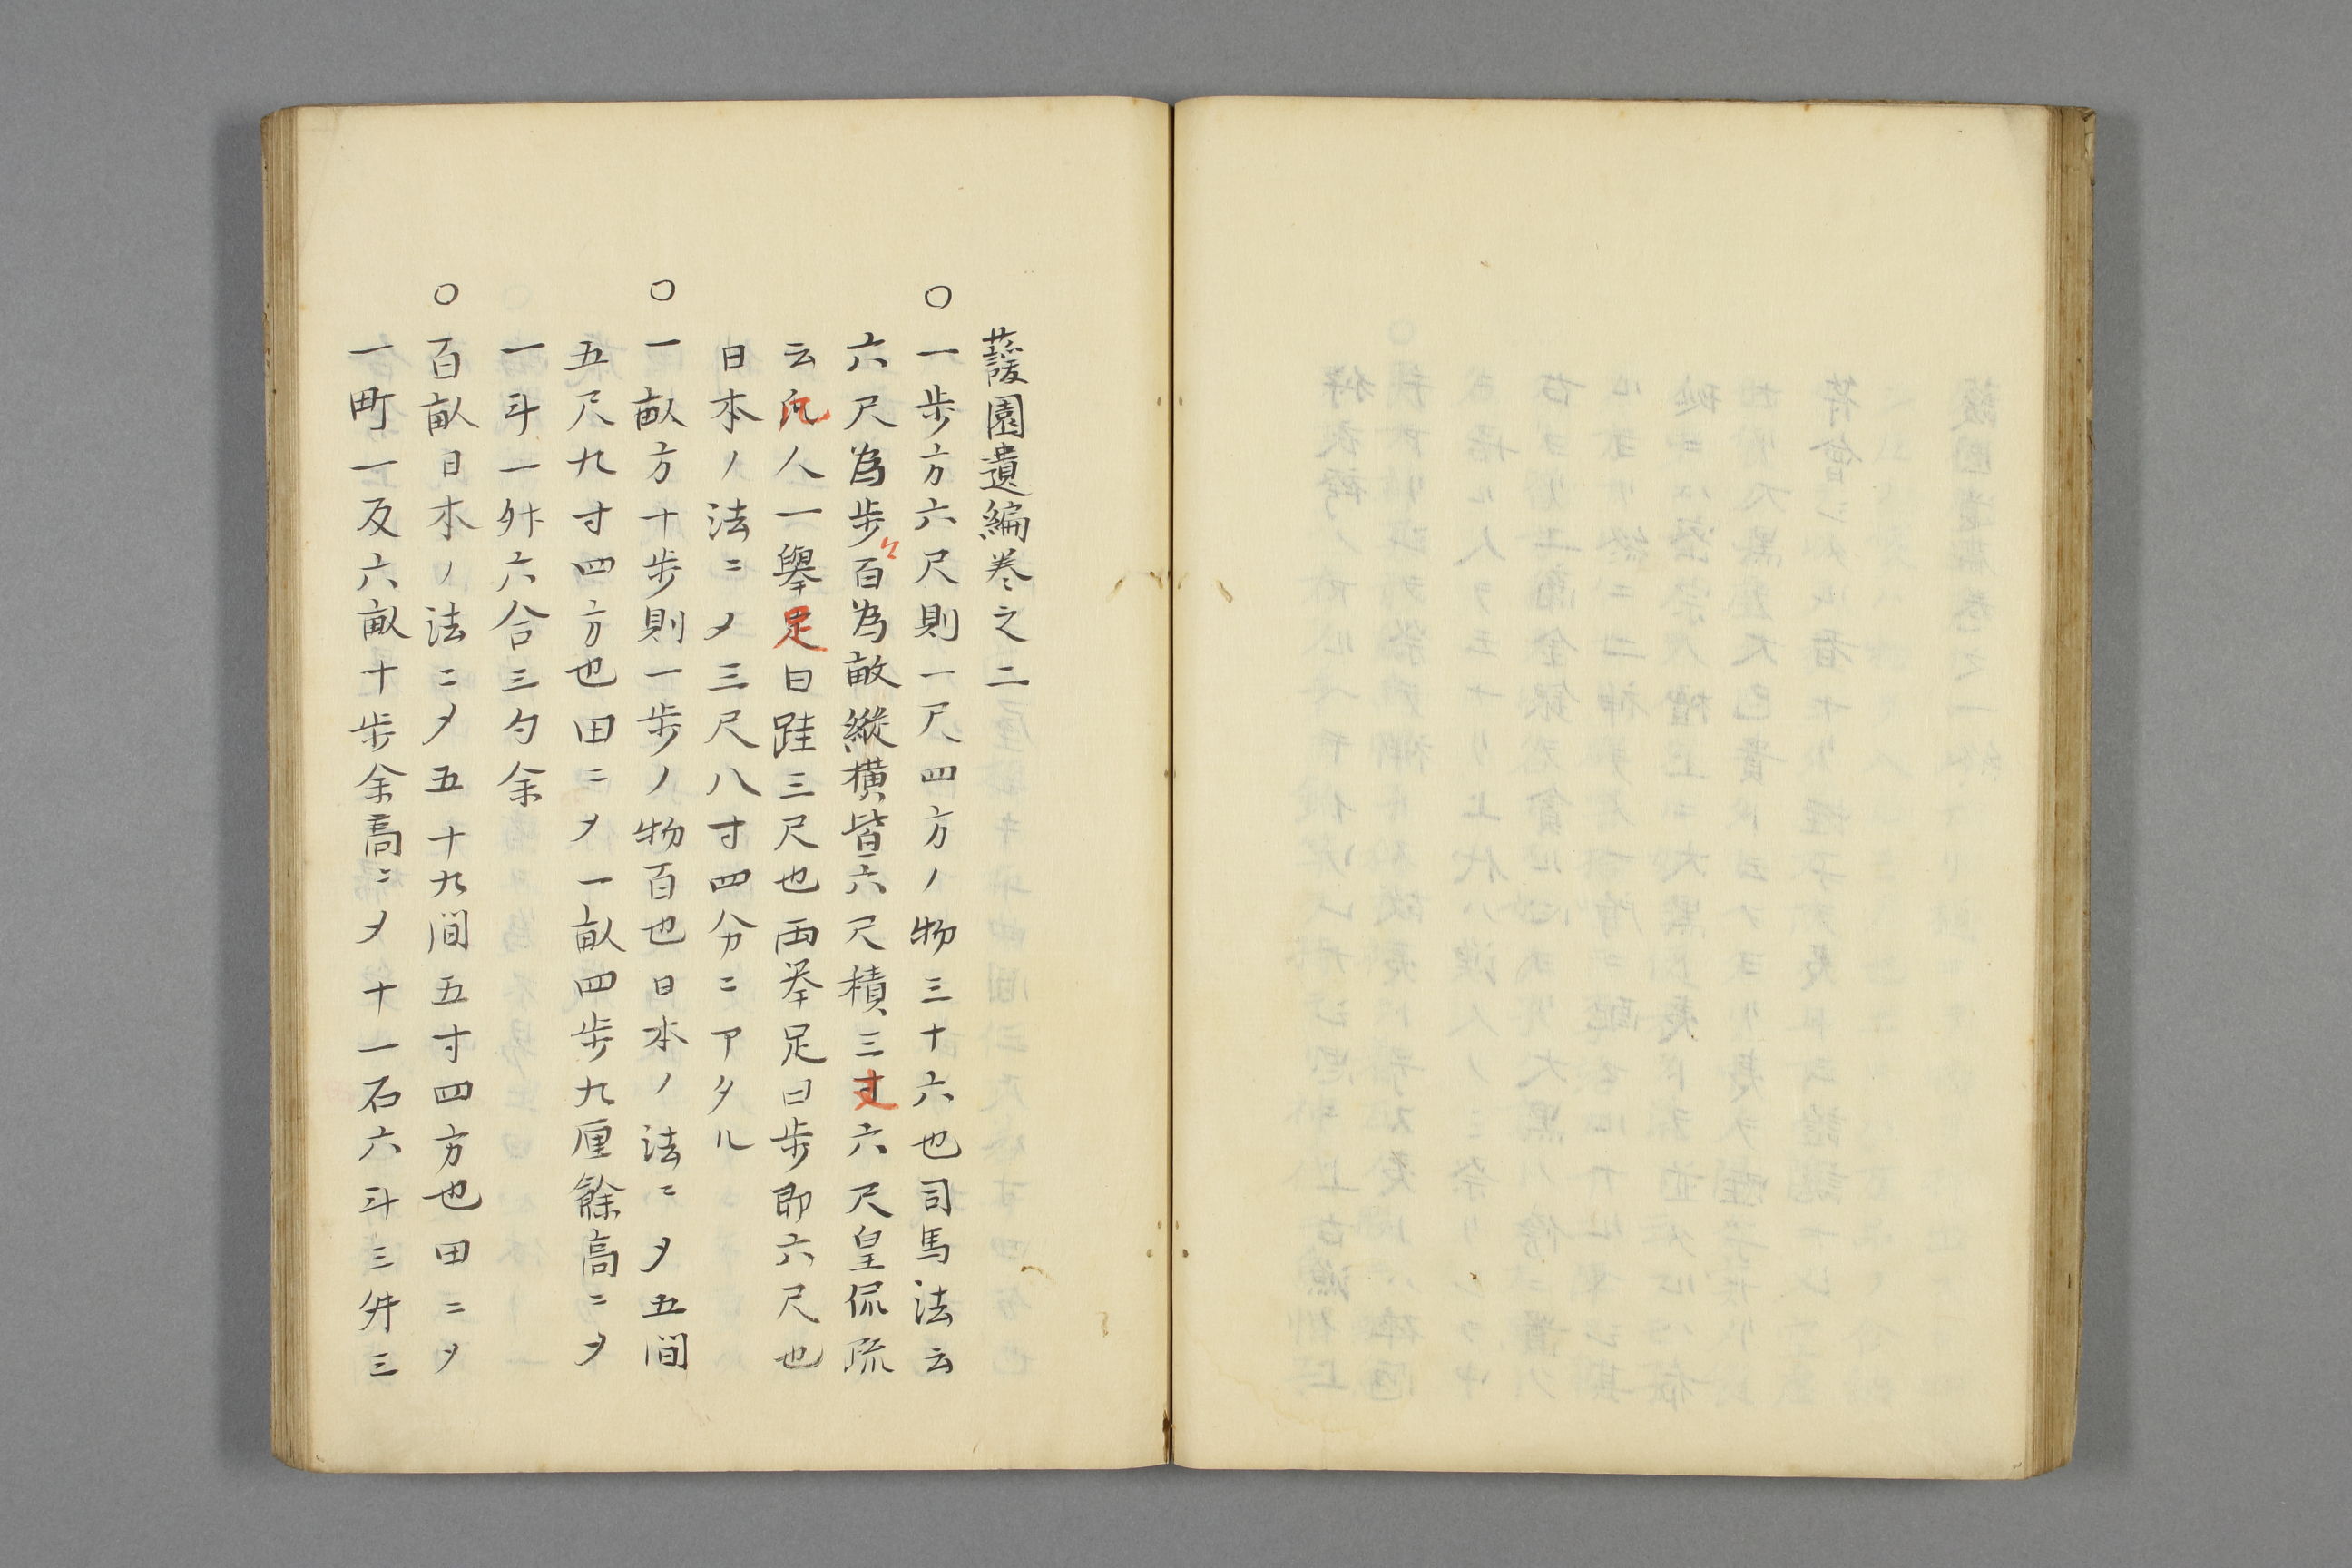 蘐園遺編巻之二
○一歩方六尺則一尺四方ノ物三十六也司馬法云
六尺為歩〻百為畝縦横皆六尺積三丈六尺皇侃疏
云凡人一擧足曰跬三尺也両挙足曰歩即六尺也
日本ノ法ニ〆三尺八寸四分ニアタル
○一畝方十歩則一歩ノ物百也日本ノ法ニ〆五間
五尺九寸四方也田ニ〆一畝四歩九厘餘高ニ〆
一斗一升六合三勺余
○百畝日本ノ法ニ〆五十九間五寸四方也田ニ〆
一町一反六畝十歩余高ニ〆十一石六斗三升三